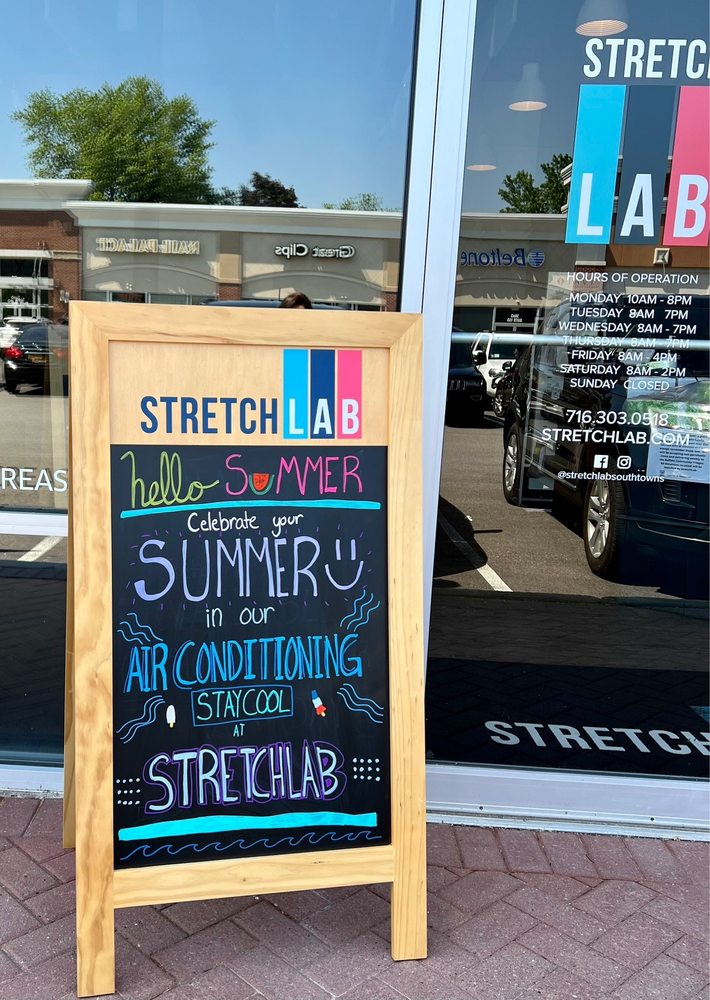 STRETCHLAB
hello SUMMER
Celebrate your
SUMMER
in our
AIR CONDITIONING
STAY COOL
AT
STRETCHLAB
REAS
NAIL PALACE
Great Clips
Beltone
STRETC
LAB
HOURS OF OPERATION
MONDAY 10AM - 8PM
TUESDAY 8AM 7PM
WEDNESDAY 8AM - 7PM
THURSDAY 8AM - 7PM
FRIDAY 8AM - 4PM
SATURDAY 8AM - 2PM
SUNDAY CLOSED
716.303.0518
STRETCHLAB.COM
@stretchlabsouthtowns
STRETCH